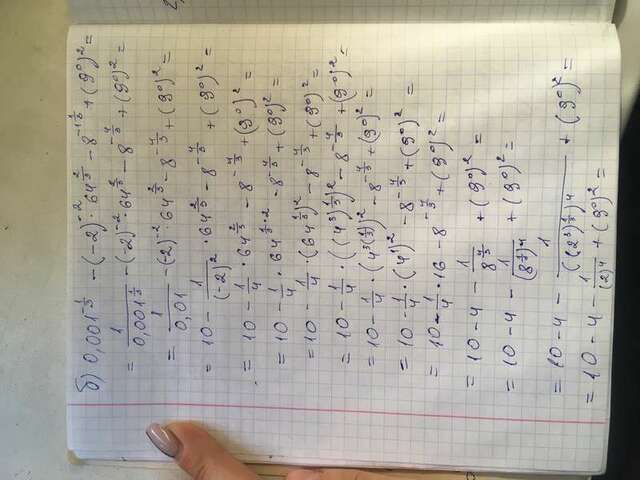 б) 0,001^{-\frac{1}{3}} - (-2)^{-2} · 64^{\frac{2}{3}} - 8^{-1\frac{1}{3}} + (9^0)^2 =
= \frac{1}{0,001^{\frac{1}{3}}} - (-2)^{-2} · 64^{\frac{2}{3}} - 8^{-\frac{4}{3}} + (9^0)^2 =
= \frac{1}{0,01} - (-2)^{-2} · 64^{\frac{2}{3}} - 8^{-\frac{4}{3}} + (9^0)^2 =
= 10 - \frac{1}{(-2)^2} · 64^{\frac{2}{3}} - 8^{-\frac{4}{3}} + (9^0)^2 =
= 10 - \frac{1}{4} · 64^{\frac{2}{3}} - 8^{-\frac{4}{3}} + (9^0)^2 =
= 10 - \frac{1}{4} · 64^{\frac{1}{3} · 2} - 8^{-\frac{4}{3}} + (9^0)^2 =
= 10 - \frac{1}{4} · (64^{\frac{1}{3}})^2 - 8^{-\frac{4}{3}} + (9^0)^2 =
= 10 - \frac{1}{4} · ((4^3)^{\frac{1}{3}})^2 - 8^{-\frac{4}{3}} + (9^0)^2 =
= 10 - \frac{1}{4} · (4^{3(\frac{1}{3})})^2 - 8^{-\frac{4}{3}} + (9^0)^2 =
= 10 - \frac{1}{4} · (4^1)^2 - 8^{-\frac{4}{3}} + (9^0)^2 =
= 10 - \frac{1}{4} · 16 - 8^{-\frac{4}{3}} + (9^0)^2 =
= 10 - 4 - \frac{1}{8^{\frac{4}{3}}} + (9^0)^2 =
= 10 - 4 - \frac{1}{(8^{\frac{1}{3}})^4} + (9^0)^2 =
= 10 - 4 - \frac{1}{((2^3)^{\frac{1}{3}})^4} + (9^0)^2 =
= 10 - 4 - \frac{1}{(2)^4} + (9^0)^2 =